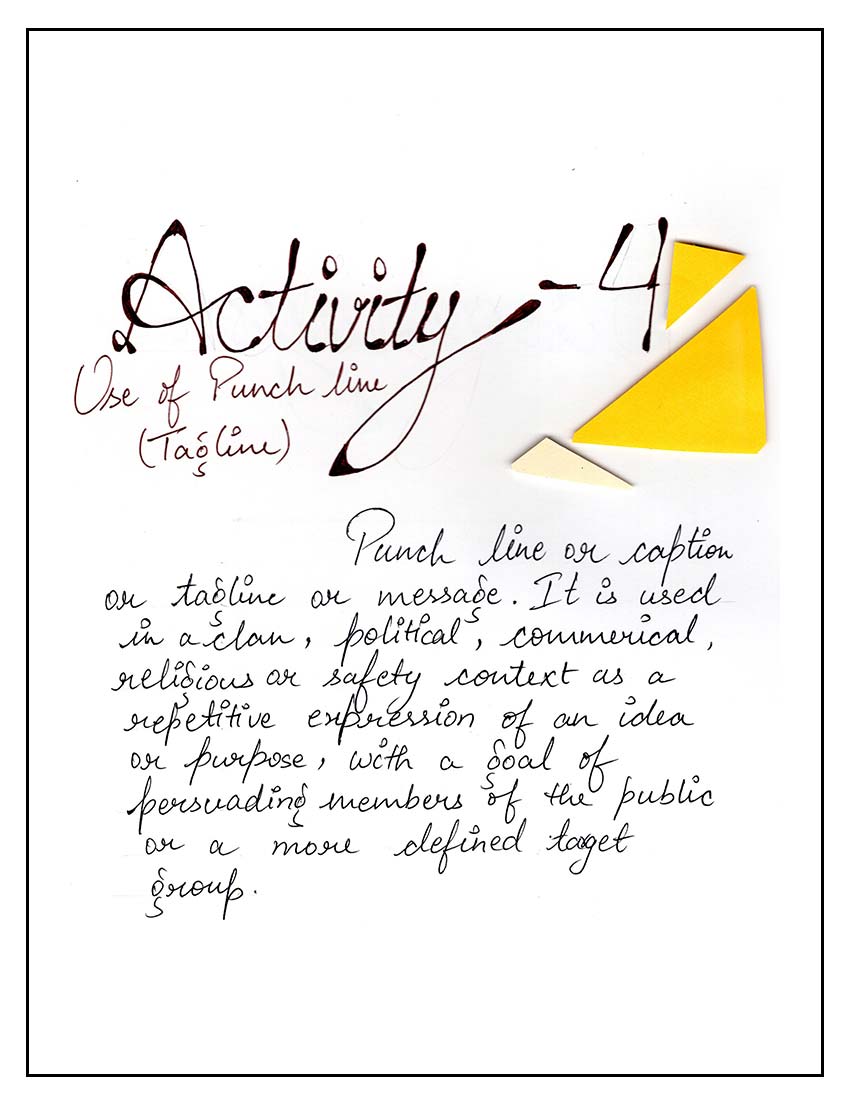 Activity - 4
Use of Punch line
(Tagline)
Punch line or caption
or tagline or message. It is used
in a clan, political, commerical,
religious or safety context as a
repetitive expression of an idea
or purpose, with a goal of
persuading members of the public
or a more defined taget
group.